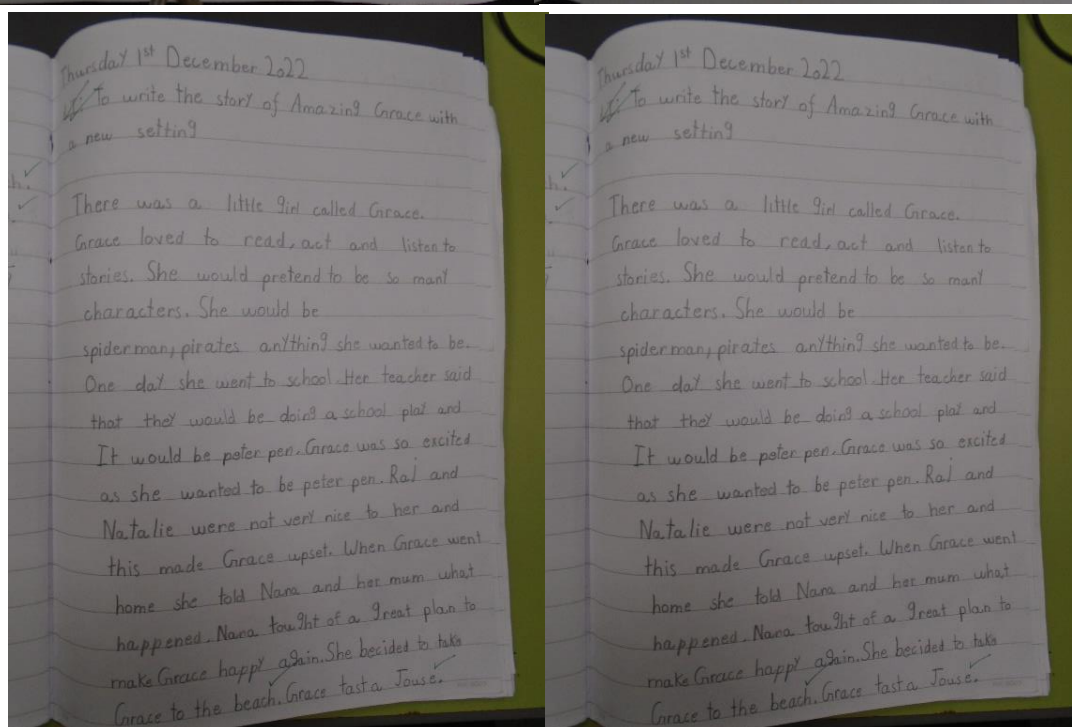 Thursday 1st December 2022
LI: To write the story of Amazing Grace with
a new setting
There was a little girl called Grace.
Grace loved to read, act and listen to
stories. She would pretend to be so many
characters. She would be
spider man, pirates anything she wanted to be.
One day she went to school. Her teacher said
that they would be doing a school play and
It would be peter pen. Grace was so excited
as she wanted to be peter pen. Raj and
Natalie were not very nice to her and
this made Grace upset. When Grace went
home she told Nana and her mum what
happened. Nana tought of a great plan to
make Grace happy again. She becided to take
Grace to the beach. Grace tast a Jouse.
Thursday 1st December 2022
LI: To write the story of Amazing Grace with
a new setting
There was a little girl called Grace.
Grace loved to read, act and listen to
stories. She would pretend to be so many
characters. She would be
spider man, pirates anything she wanted to be.
One day she went to school. Her teacher said
that they would be doing a school play and
It would be peter pen. Grace was so excited
as she wanted to be peter pen. Raj and
Natalie were not very nice to her and
this made Grace upset. When Grace went
home she told Nana and her mum what
happened. Nana tought of a great plan to
make Grace happy again. She becided to take
Grace to the beach. Grace tast a Jouse.